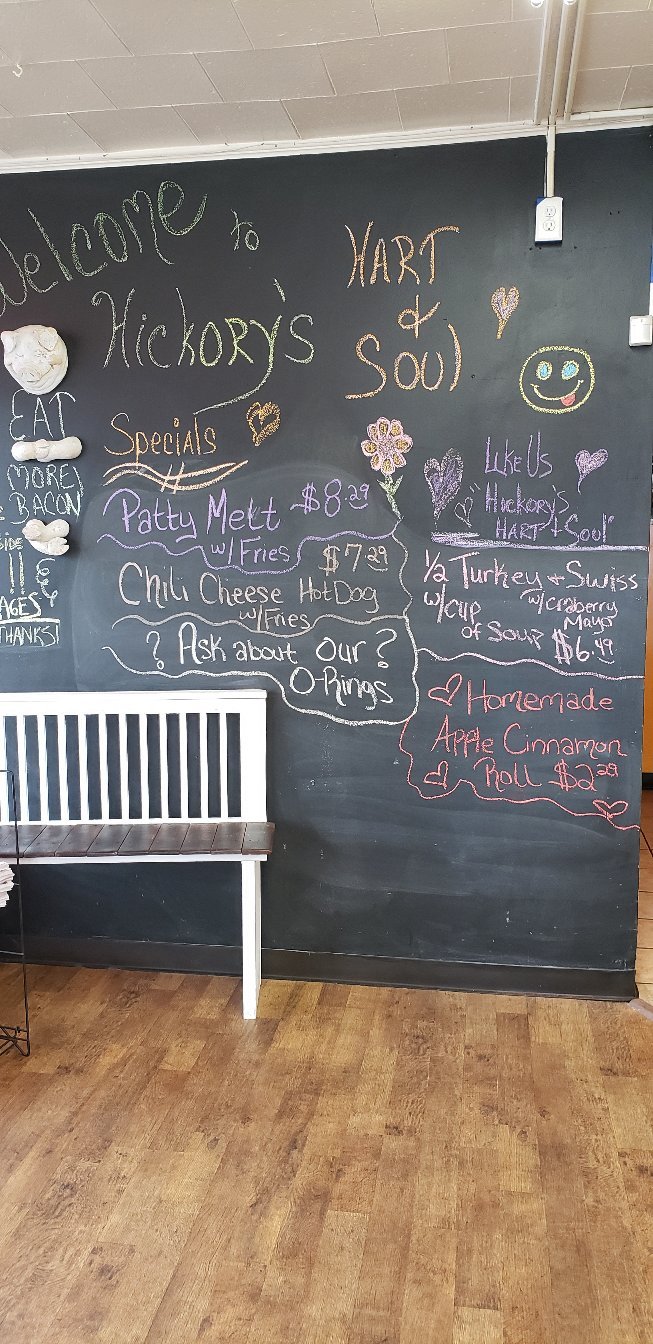 Welcome to
Hickory's
HART
&
Soul
EAT
MORE
BACON
!!
THANKS!
Specials
Patty Mett $8.29
w/Fries
$7.29
Chili Cheese HotDog
w/Fries
? Ask about our ?
O-Rings
Like Us
"Hickory's
HART + Soul"
1/2 Turkey + Swiss
w/cup w/craberry
of Soup Mayo
$6.49
Homemade
Apple Cinnamon
Roll $2.29